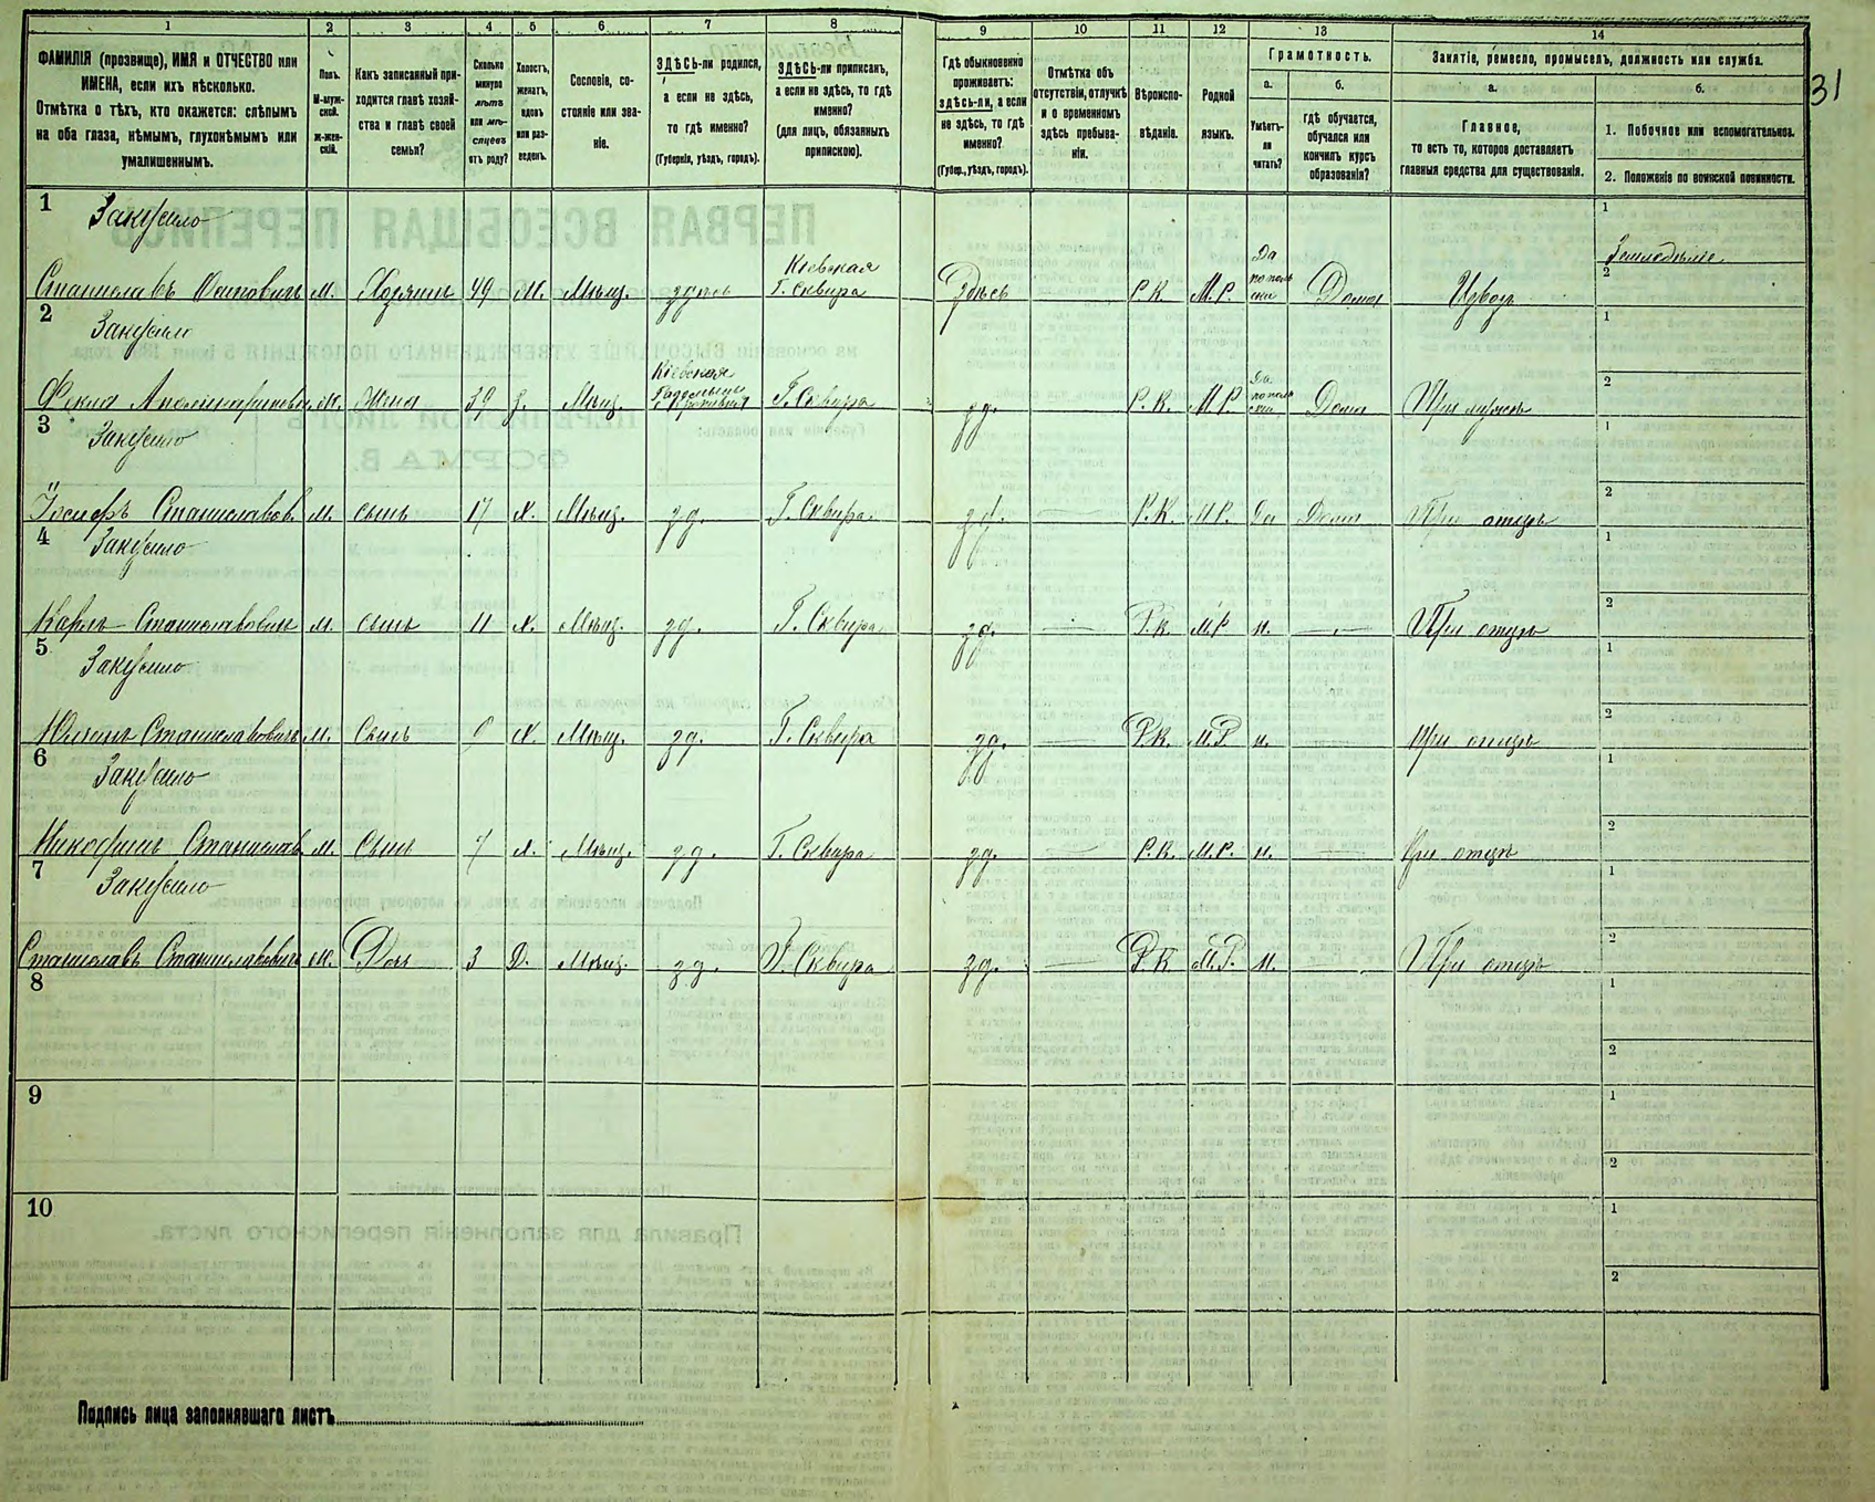 1 2 3 4 5 6 7 8 9 10 11 12 13 14
ФАМИЛІЯ (прозвище), ИМЯ и ОТЧЕСТВО или
ИМЕНА, если ихъ нѣсколько.
Отмѣтка о тѣхъ, кто окажется: слѣпымъ
на оба глаза, нѣмымъ, глухонѣмымъ или
умалишеннымъ.
Полъ.
М-муж-
ской.
ж-жен-
скій.
Какъ записанный при-
ходится главѣ хозяй-
ства и главѣ своей
семьи?
Сколько
минуло
лѣтъ
или мѣ-
сяцевъ
отъ роду?
Холостъ,
женатъ,
вдовъ
или раз-
веденъ.
Сословіе, со-
стояніе или зва-
ніе.
ЗДѢСЬ-ли родился,
а если не здѣсь,
то гдѣ именно?
(Губернія, уѣздъ, городъ).
ЗДѢСЬ-ли приписанъ,
а если не здѣсь, то гдѣ
именно?
(для лицъ, обязанныхъ
припискою).
Гдѣ обыкновенно
проживаетъ:
здѣсь-ли, а если
не здѣсь, то гдѣ
именно?
(Губер., уѣздъ, городъ).
Отмѣтка объ
отсутствіи, отлучкѣ
и о временномъ
здѣсь пребыва-
ніи.
Вѣроиспо-
вѣданіе.
Родной
языкъ.
Грамотность.
а.
Умѣетъ-
ли
читать?
б.
гдѣ обучается,
обучался или
кончилъ курсъ
образованія?
Занятіе, ремесло, промыселъ, должность или служба.
а.
Главное,
то есть то, которое доставляетъ
главныя средства для существованія.
б.
1. Побочное или вспомогательное.
2. Положеніе по воинской повинности.
31
1 Закусило
Станиславъ Осиповичъ м. Хозяинъ 49 М. Мѣщ. здѣсь Кіевская Г. Сквира Здѣсь Р. К. М. Р. Да Дома Извозъ Земледѣліе
2 Закусило
Жена 39 Мѣщ. Кіевская Г. Сквира зд. Р. К. М. Р. Да Дома При мужѣ
3 Закусило
Іосифъ Станиславов. м. сынъ 17 х. Мѣщ. зд. Г. Сквира зд. — Р. К. М. Р. Да Дома При отцѣ
4 Закусило
Карлъ Станиславовичъ м. сынъ 11 х. Мѣщ. зд. Г. Сквира зд. — Р. К. М. Р. н. — При отцѣ
5 Закусило
Станиславовичъ м. Сынъ 9 х. Мѣщ. зд. Г. Сквира зд. — Р. К. М. Р. н. — При отцѣ
6 Закусило
Станислав. м. Сынъ 7 х. Мѣщ. зд. Г. Сквира зд. — Р. К. М. Р. н. — При отцѣ
7 Закусило
Мѣщ. зд. Г. Сквира зд. — Р. К. М. Р. н. — При отцѣ
8
9
10
Подпись лица заполнявшаго листъ